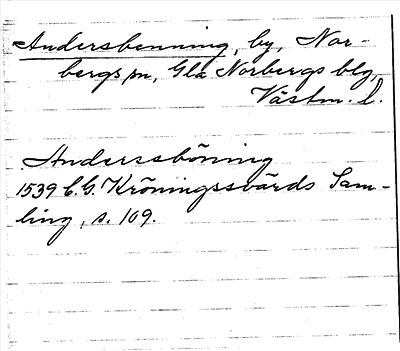 Andersbenning, by, Nor-
bergs sn, Gla Norbergs blg,
Västm. l.
Anderssböning
1539 C. G. Kröningssvärds Sam-
ling, s. 109.